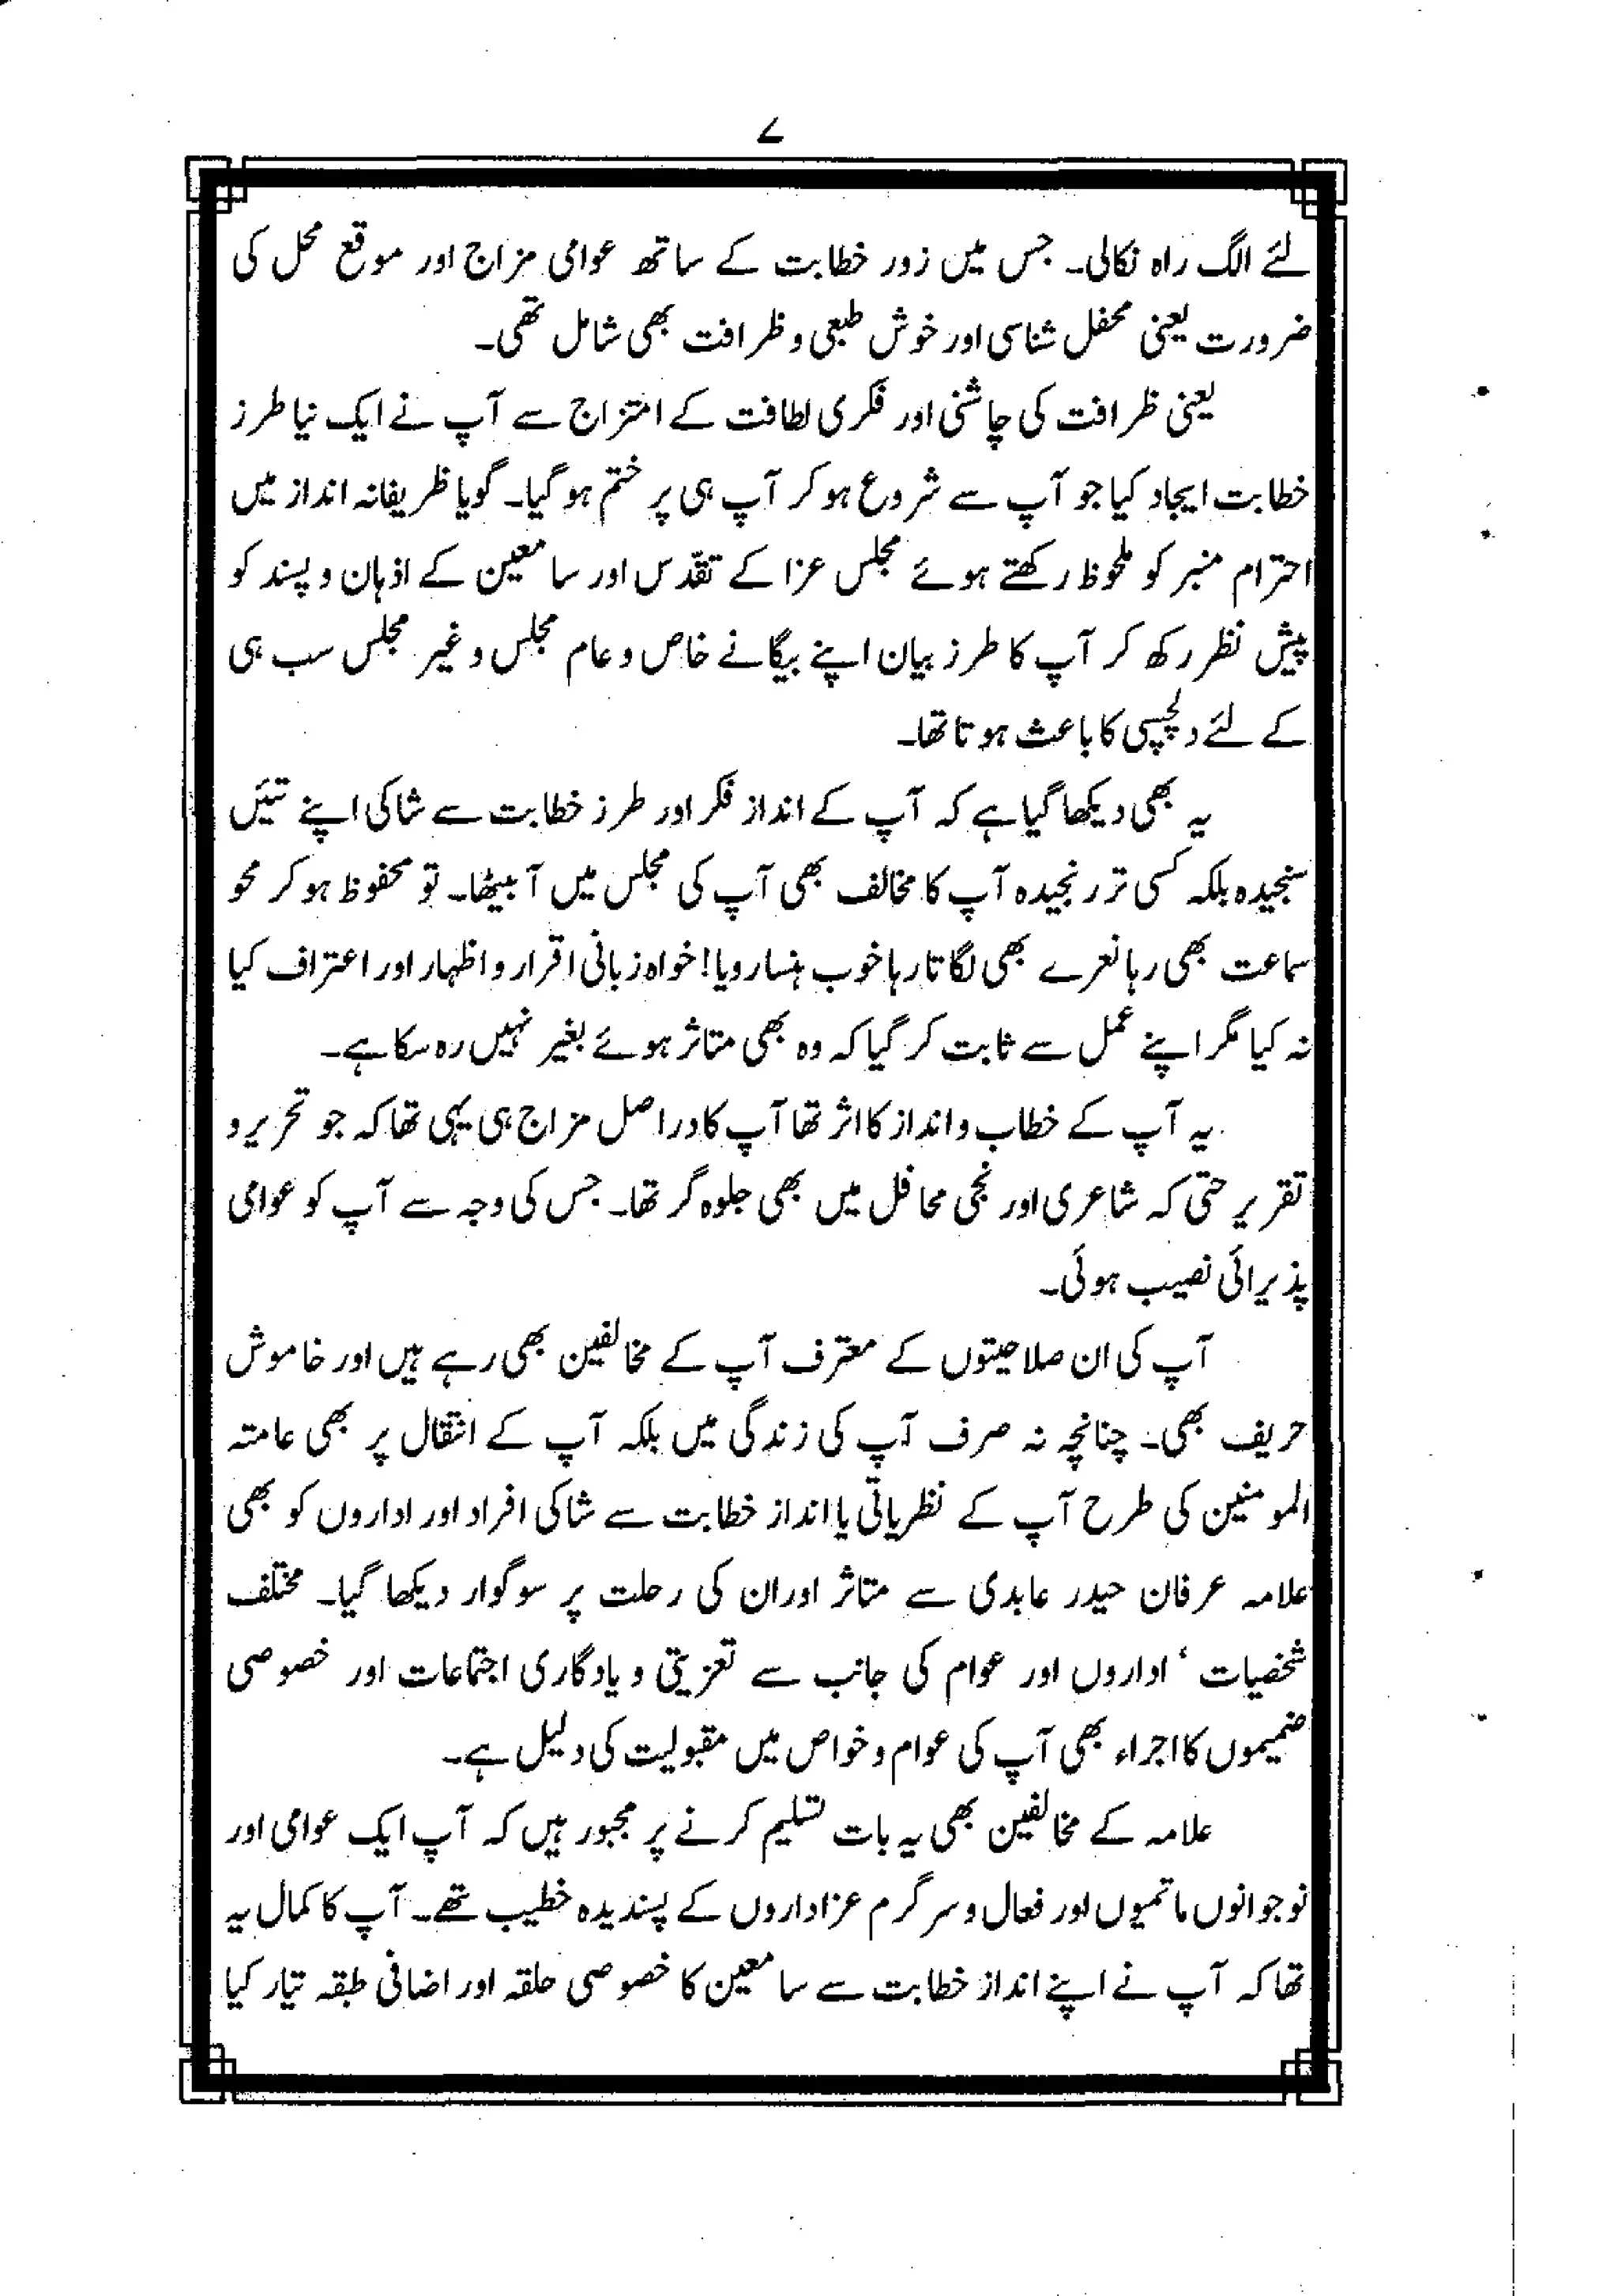 ۷
لئے الگ راہ نکالی۔ جس میں زور خطابت کے ساتھ عوامی مزاج اور موقع محل کی
ضرورت یعنی محفل شناسی اور خوش طبعی و ظرافت بھی شامل تھی۔
یعنی ظرافت کی چاشنی اور فکری لطافت کے امتزاج سے آپ نے ایک نیا طرز
خطابت ایجاد کیا جو آپ سے شروع ہو کر آپ ہی پر ختم ہو گیا۔ گویا ظریفانہ انداز میں
احترام منبر کو ملحوظ رکھتے ہوئے مجلس عزا کے تقدّس اور سامعین کے اذہان و پسند کو
پیش نظر رکھ کر آپ کا طرز بیان اپنے بیگانے خاص و عام مجلس و غیر مجلس سب ہی
کے لئے دلچسپی کا باعث ہوتا تھا۔
یہ بھی دیکھا گیا ہے کہ آپ کے انداز فکر اور طرز خطابت سے شاکی اپنے تئیں
سنجیدہ بلکہ کسی تر رنجیدہ آپ کا مخالف بھی آپ کی مجلس میں آ بیٹھا۔ تو محفوظ ہو کر محو
سماعت بھی رہا نعرے بھی لگاتا رہا خوب ہنسا رویا! خواہ زبانی اقرار و اظہار اور اعتراف کیا
نہ کیا مگر اپنے عمل سے ثابت کر گیا کہ وہ بھی متاثر ہوئے بغیر نہیں رہ سکا ہے۔
یہ آپ کے خطاب و انداز کا اثر تھا آپ کا دراصل مزاج ہی یہی تھا کہ جو تحریر و
تقریر حتیٰ کہ شاعری اور نجی محافل میں بھی جلوہ گر تھا۔ جس کی وجہ سے آپ کو عوامی
پذیرائی نصیب ہوئی۔
آپ کی ان صلاحیتوں کے معترف آپ کے مخالفین بھی رہے ہیں اور خاموش
حریف بھی۔ چنانچہ نہ صرف آپ کی زندگی میں بلکہ آپ کے انتقال پر بھی عامتہ
المومنین کی طرح آپ کے نظریاتی یا انداز خطابت سے شاکی افراد اور اداروں کو بھی
علامہ عرفان حیدر عابدی سے متاثر اور ان کی رحلت پر سوگوار دیکھا گیا۔ مختلف
شخصیات ٬ اداروں اور عوام کی جانب سے تعزیتی و یادگاری اجتماعات اور خصوصی
ضمیموں کا اجراء بھی آپ کی عوام و خواص میں مقبولیت کی دلیل ہے۔
علامہ کے مخالفین بھی یہ بات تسلیم کرنے پر مجبور ہیں کہ آپ ایک عوامی اور
نوجوانوں ماتمیوں اور فعال و سرگرم عزاداروں کے پسندیدہ خطیب تھے۔ آپ کا کمال یہ
تھا کہ آپ نے اپنے انداز خطابت سے سامعین کا خصوصی حلقہ اور اضافی طبقہ تیار کیا